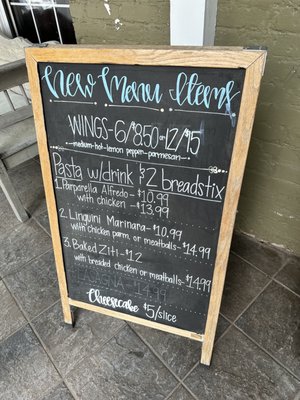 New Menu Items
WINGS-6/$8.50 or 12/$15
-medium-hot-lemon pepper-parmesan-
Pasta w/drink & 2 breadstix
1. Parparella Alfredo - $10.99
with chicken - $13.99
2. Linguini Marinara - $10.99
with chicken parm. or meatballs - $14.99
3. Baked Ziti - $12
with breaded chicken or meatballs - $14.99
Cheesecake $5/slice